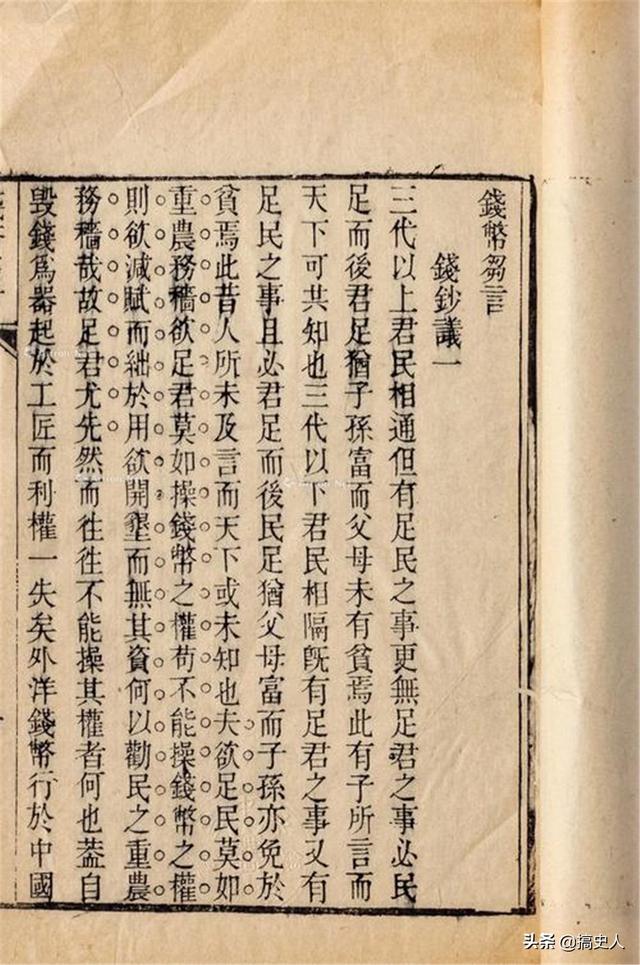 錢幣芻言
錢鈔議一
三代以上君民相通但有足民之事更無足君之事必民
足而後君足猶子孫富而父母未有貧焉此有子所言而
天下可共知也三代以下君民相隔既有足君之事又有
足民之事且必君足而後民足猶父母富而子孫亦免於
貧焉此昔人所未及言而天下或未知也夫欲足民莫如
重農務穡欲足君莫如操錢幣之權苟不能操錢幣之權
則欲減賦而絀於用欲開墾而無其資何以勸民之重農
務穡哉故足君尤先然而往往不能操其權者何也葢自
毀錢爲器起於工匠而利權一失矣外洋錢幣行於中國
头条 @搞史人